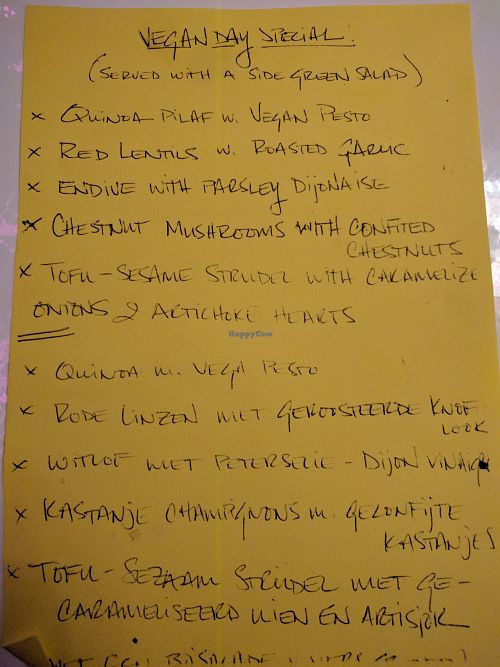 VEGAN DAY SPECIAL.
(SERVED WITH A SIDE GREEN SALAD)
x QUINOA PILAF W. VEGAN PESTO
x RED LENTILS W. ROASTED GARLIC
x ENDIVE WITH PARSLEY DIJONAISE
x CHESTNUT MUSHROOMS WITH CONFITED
CHESTNUTS
x TOFU-SESAME STRUDEL WITH CARAMELIZE
ONIONS & ARTICHOKE HEARTS
HappyCow
x QUINOA M. VEGA PESTO
x RODE LINZEN MET GEROOSTEERDE KNOF
LOOK
x WITLOF MET PETERSELIE - DIJON VINAIGR
x KASTANJE CHAMPIGNONS M. GEKONFIJTE
KASTANJES
x TOFU-SEZAAM STRUDEL MET GE-
CARAMELISEERD UIEN EN ARTISJOK
MET EEN